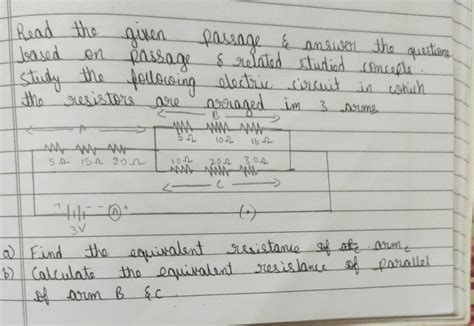 Read the given passage & answer the questions
based on passage & related studied concepts.
Study the following electric circuit in which
the resistors are arranged in 3 arms
A
B
5Ω 10Ω 15Ω
5Ω 15Ω 20Ω
10Ω 20Ω 30Ω
C
+ -
A
3V
a) Find the equivalent resistance of arm C
b) Calculate the equivalent resistance of parallel
of arm B & C.